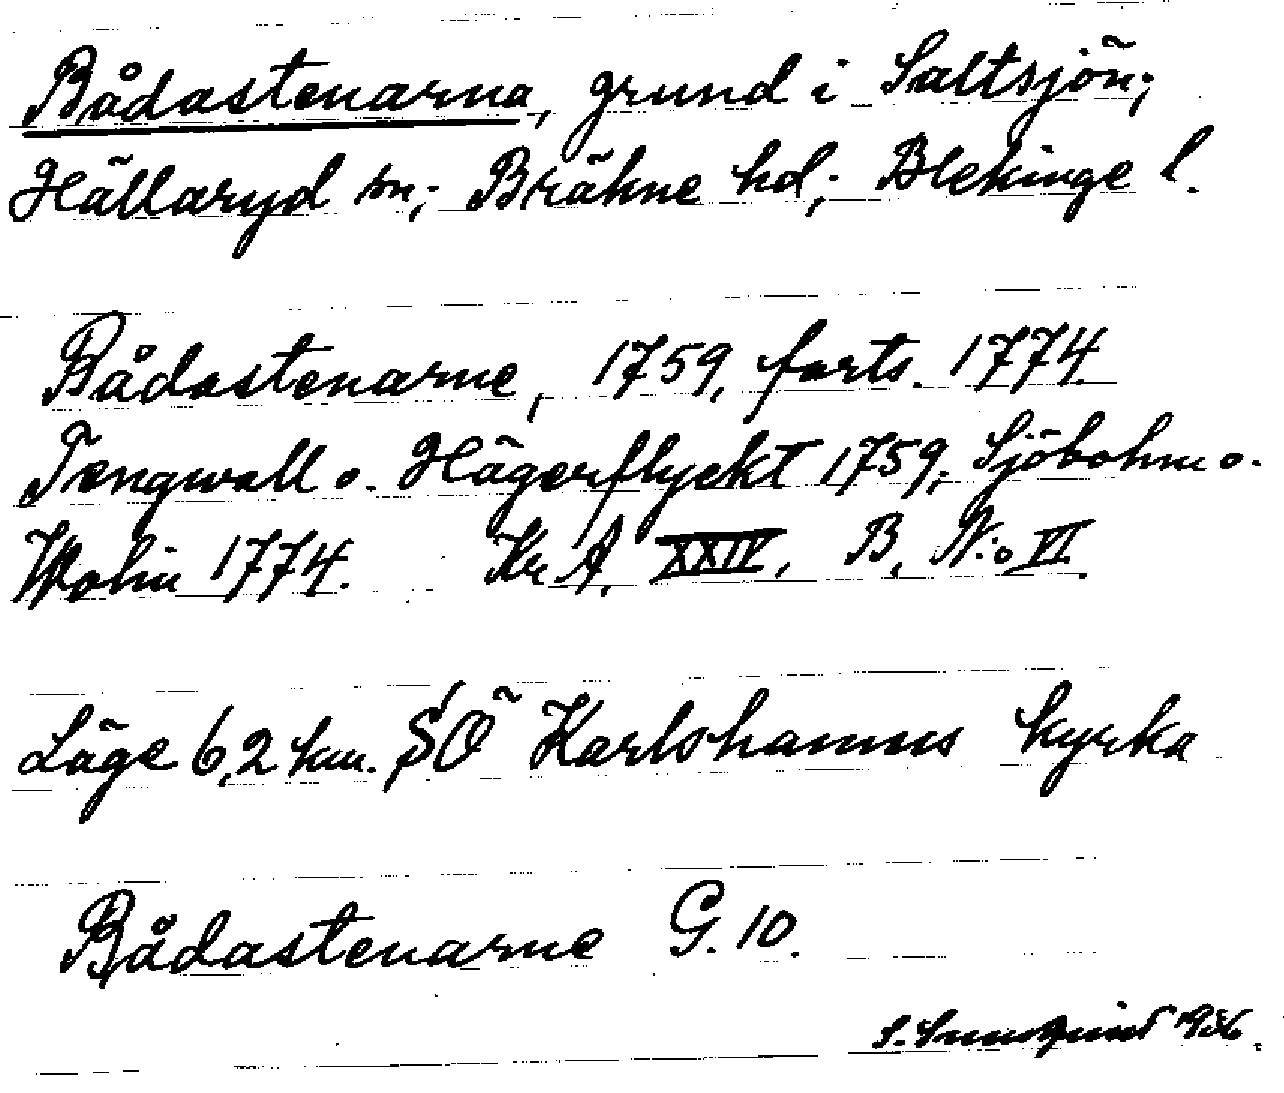 Bådastenarna, grund i Saltsjön;
Hällaryd sn; Bräkne hd; Blekinge l.
Bådastenarne, 1759, forts. 1774
Tengwall o. Hägerflyckt 1759; Sjöbohm o.
Wolin 1774. Kr A. XXIV, B, N:o VI.
Läge 6,2 km. SÖ Karlshamns kyrka
Bådastenarne G. 10.
S. 1936.